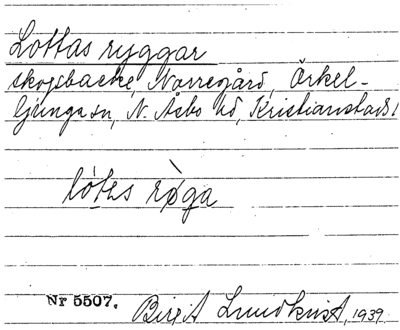 Lottas ryggar
skogsbacke, Norregård, Örkel-
ljunga sn, N. Åsbo hd, Kristianstads l
lótes ròga
Nr 5507. Birgit Lundkvist, 1939